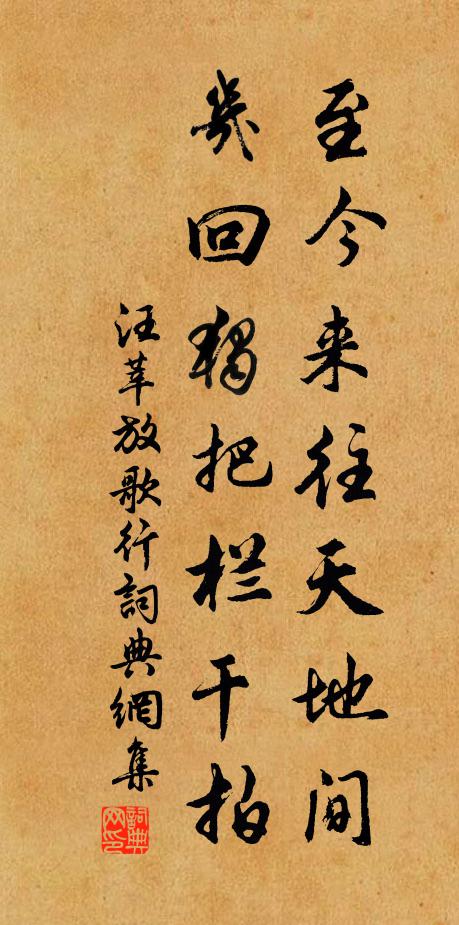 至今来往天地间
几回独把栏干拍
汪莘放歌行词典網集
詞典网印